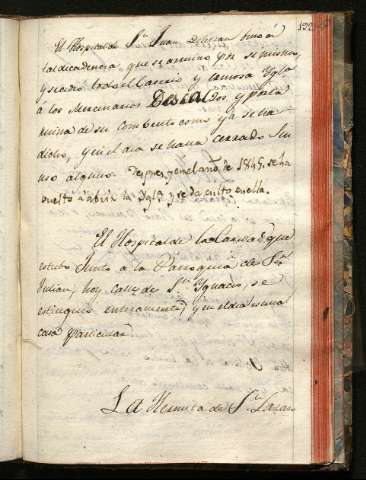 El Hospital de Sn Juan de Dios vino á
tal decadencia, que se arruinó por si mismo,
y se dió todo el Cascaro y famosa Ygla
á los Mercenarios Descalzos y para
ruina de su Combento como ya se ha
dicho, y en el dia se haya cerrado sin
uso alguno. Despues, y en el año de 1845, se ha
vuelto á abrir la Ygla y se da culto en ella.
El Hospital de la Carid que
estubo junto á la Parroquia de Sn
Julian, hoy calle de Sn Ygnacio, se
estinguió enteramente, y en el dia es una
casa particular.
La Hermita de Sn Lazaro